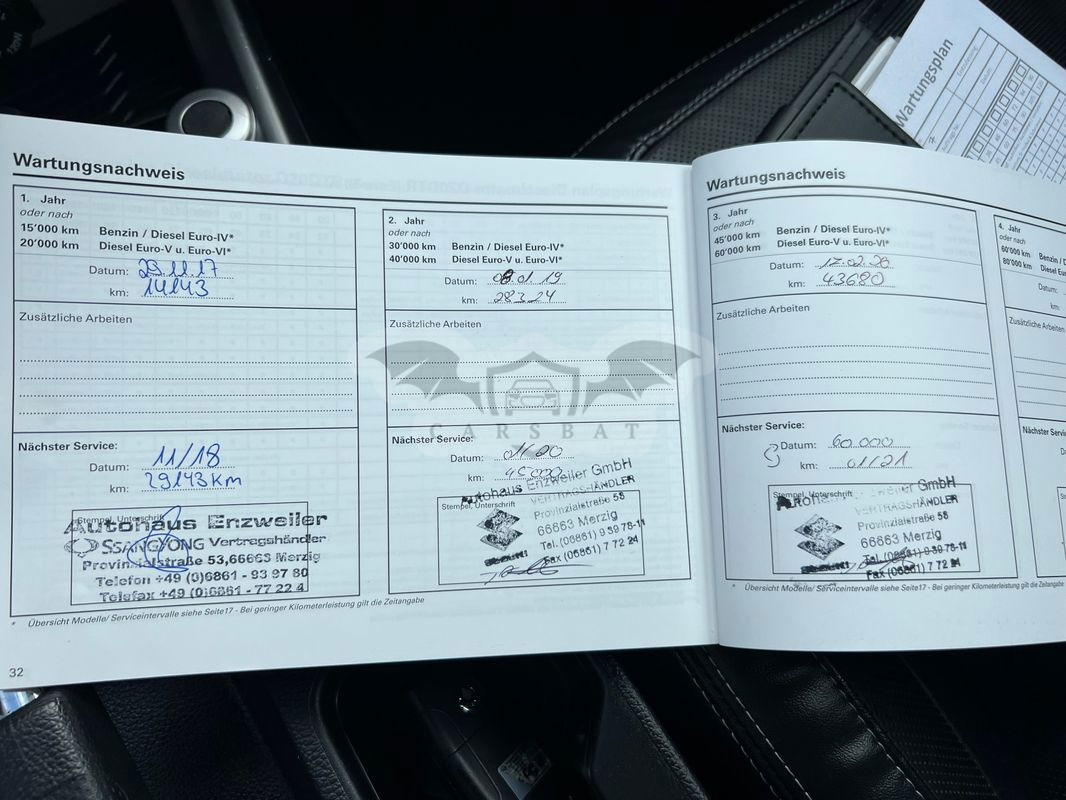 Wartungsnachweis
1. Jahr
oder nach
15'000 km Benzin / Diesel Euro-IV*
20'000 km Diesel Euro-V u. Euro-VI*
Datum: 29.11.17
km: 14143
Zusätzliche Arbeiten
Nächster Service:
Datum: 11/18
km: 29143 Km
Stempel, Unterschrift
Autohaus Enzweiler
SSANGYONG Vertragshändler
Provinzialstraße 53, 66663 Merzig
Telefon +49 (0)6861 - 93 97 80
Telefax +49 (0)6861 - 77 22 4
* Übersicht Modelle/ Serviceintervalle siehe Seite17 - Bei geringer Kilometerleistung gilt die Zeitangabe
32
2. Jahr
oder nach
30'000 km Benzin / Diesel Euro-IV*
40'000 km Diesel Euro-V u. Euro-VI*
Datum: 08.01.19
km: 28324
Zusätzliche Arbeiten
CARSBAT
Nächster Service:
Datum: 01/20
km: 45000
Stempel, Unterschrift
Autohaus Enzweiler GmbH
VERTRAGSHÄNDLER
Provinzialstraße 58
66663 Merzig
Tel. (06861) 9 39 78-11
Fax (06861) 7 72 24
Wartungsnachweis
3. Jahr
oder nach
45'000 km Benzin / Diesel Euro-IV*
60'000 km Diesel Euro-V u. Euro-VI*
Datum: 17.02.20
km: 43680
Zusätzliche Arbeiten
Nächster Service:
Datum: 60.000
km: 01/21
Stempel, Unterschrift
GmbH
VERTRAGSHÄNDLER
Provinzialstraße 58
66663 Merzig
Tel. (06861) 9 39 78-11
Fax (06861) 7 72 24
* Übersicht Modelle/ Serviceintervalle siehe Seite17 - Bei geringer Kilometerleistung gilt die Zeitangabe
4. Jahr
oder nach
60'000 km Benzin /
80'000 km Diesel
Datum:
km:
Zusätzliche Arbeiten
Nächster Service:
Wartungsplan
Datum: